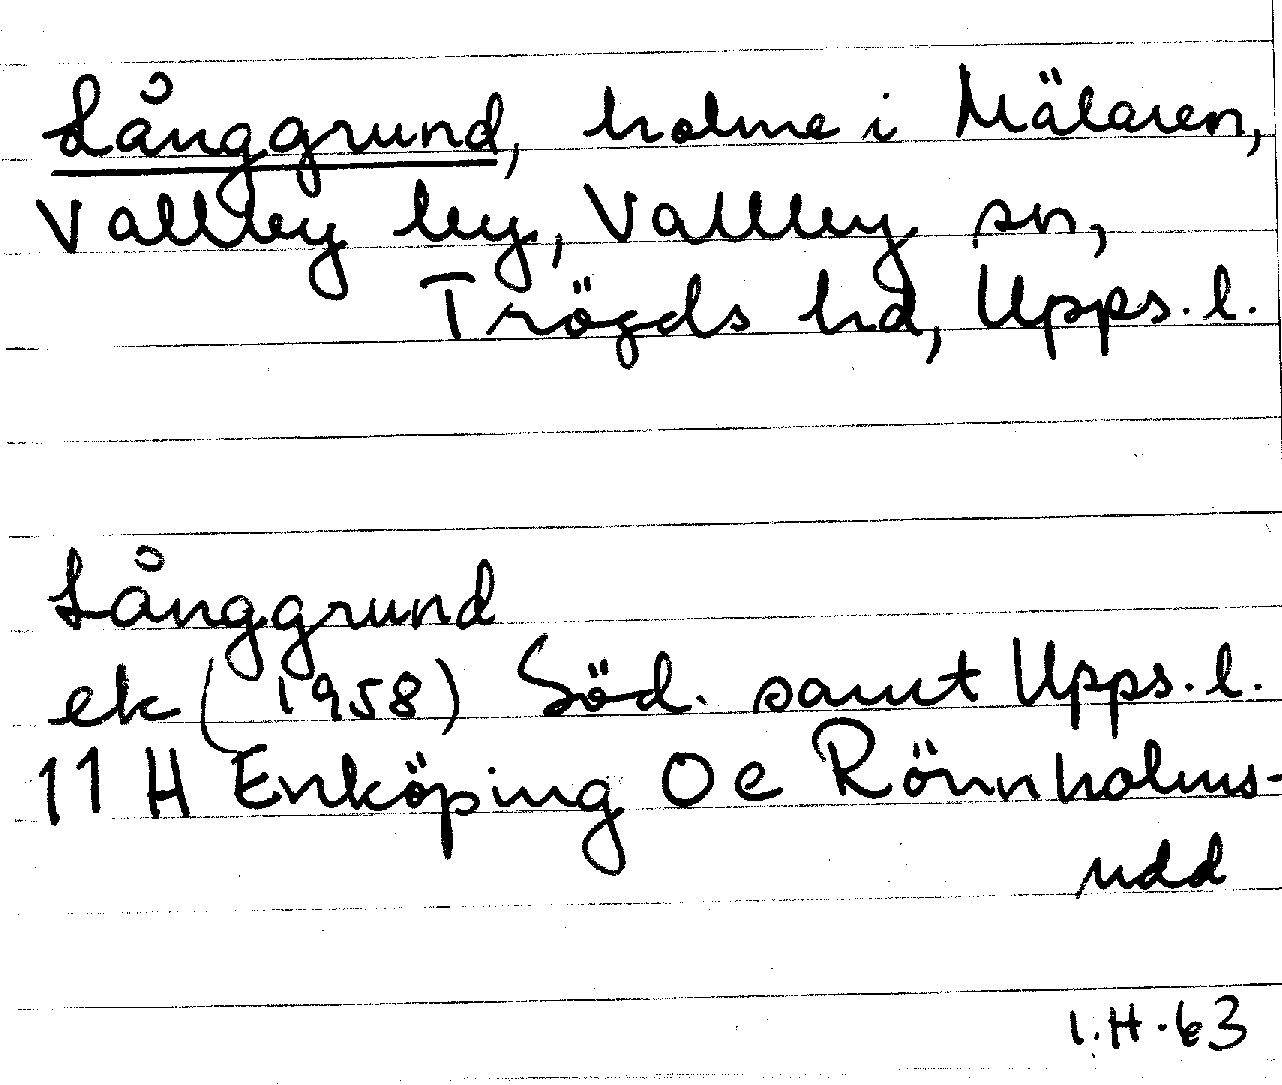 Långgrund, holme i Mälaren,
Vallby by, Vallby sn,
Trögds hd, Upps. l.
Långgrund
ek (1958) Söd. samt Upps. l.
11 H Enköping 0 e Rönnholms-
udd
I.H. 63